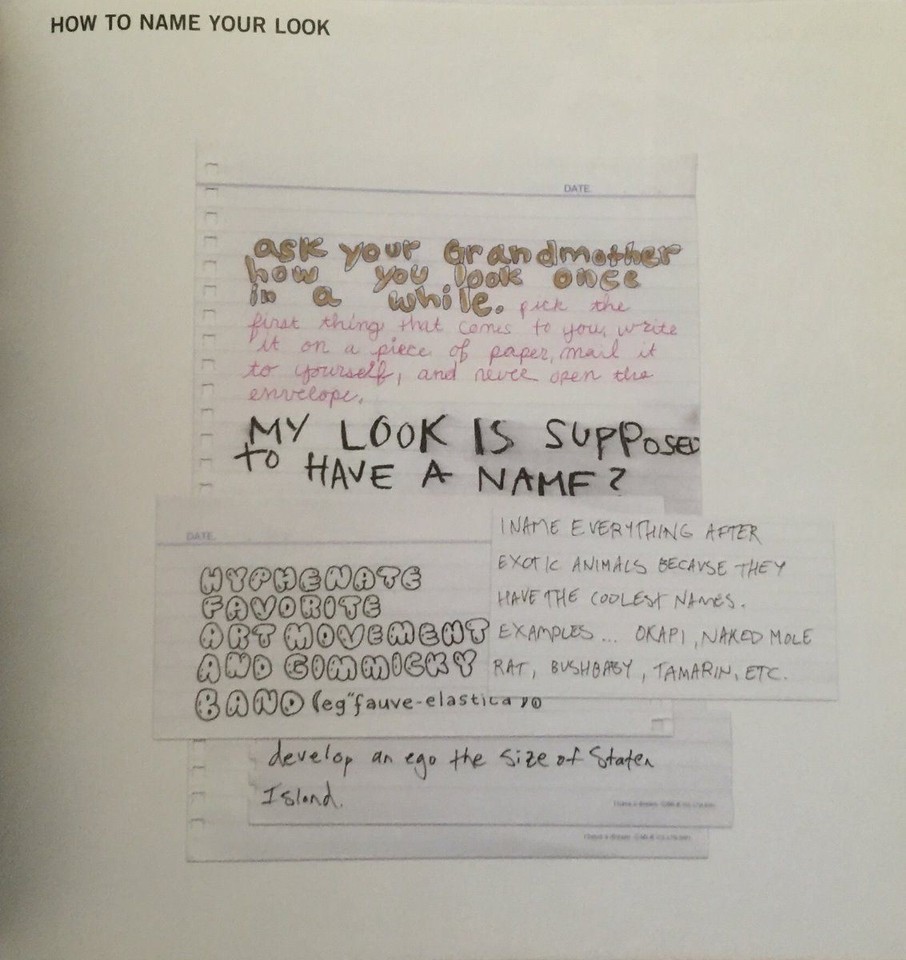 HOW TO NAME YOUR LOOK
DATE
ask your Grandmother
how you look once
in a while. pick the
first thing that comes to you, write
it on a piece of paper, mail it
to yourself, and never open the
envelope.
MY LOOK IS SUPPOSED
to HAVE A NAME?
DATE.
HYPHENATE
FAVORITE
ART MOVEMENT
AND GIMMICKY
BAND (eg "fauve-elastica")
I NAME EVERYTHING AFTER
EXOTIC ANIMALS BECAUSE THEY
HAVE THE COOLEST NAMES.
EXAMPLES... OKAPI, NAKED MOLE
RAT, BUSHBABY, TAMARIN, ETC.
develop an ego the size of Staten
Island.